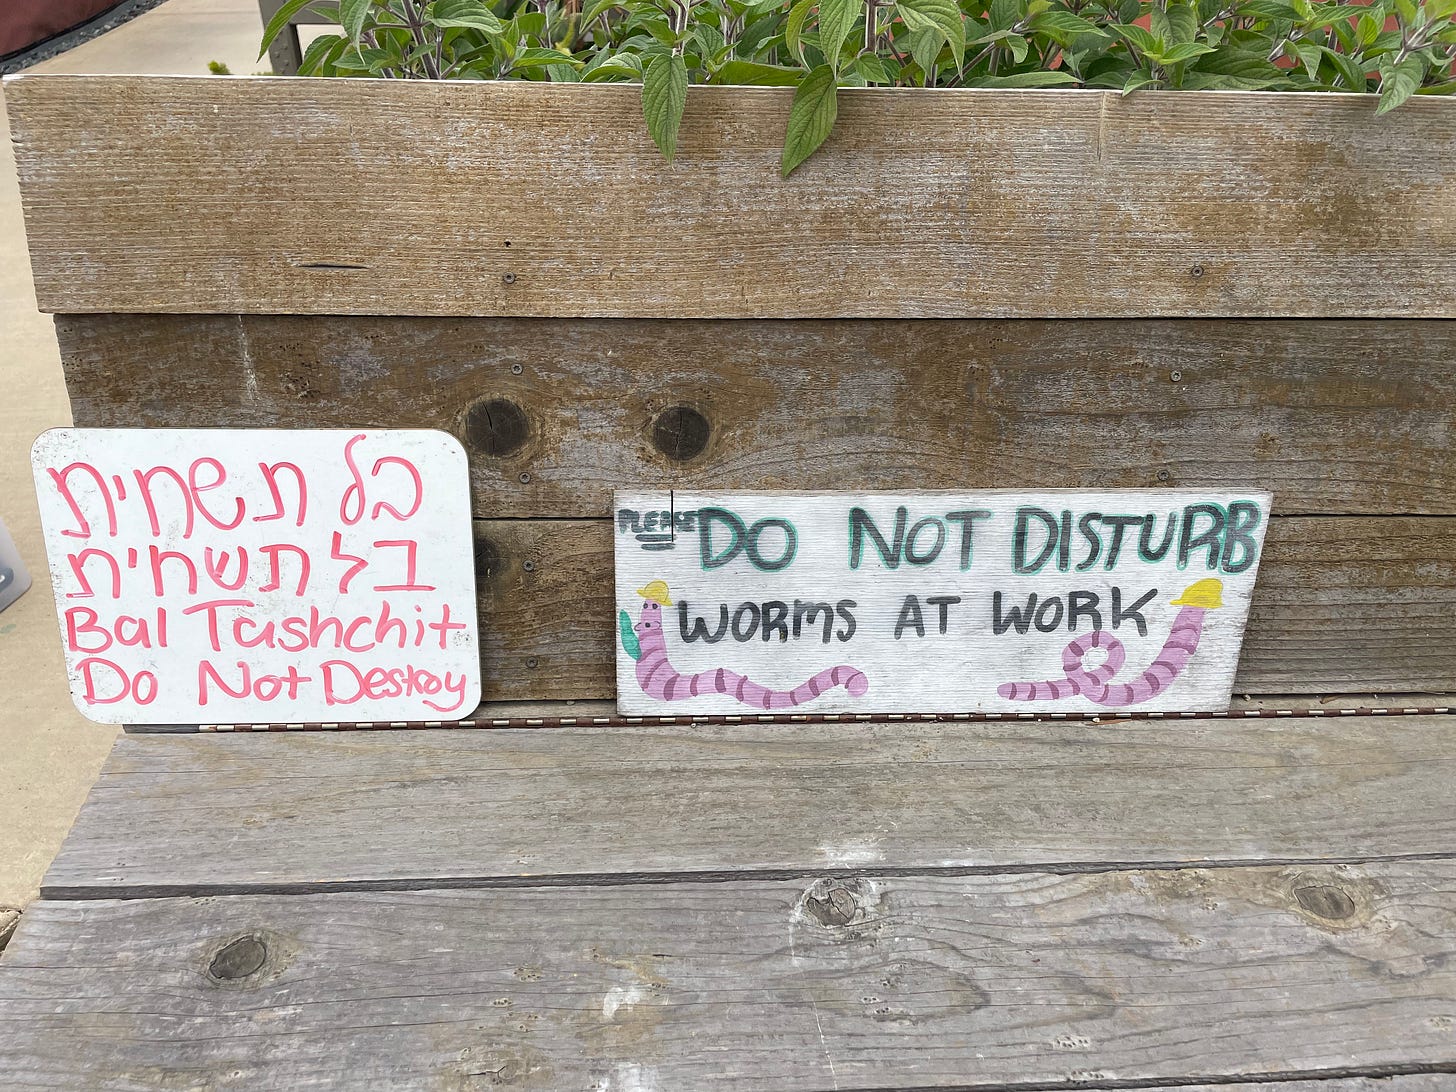 בל תשחית
בל תשחית
Bal Tashchit
Do Not Destroy
PLEASE DO NOT DISTURB
WORMS AT WORK